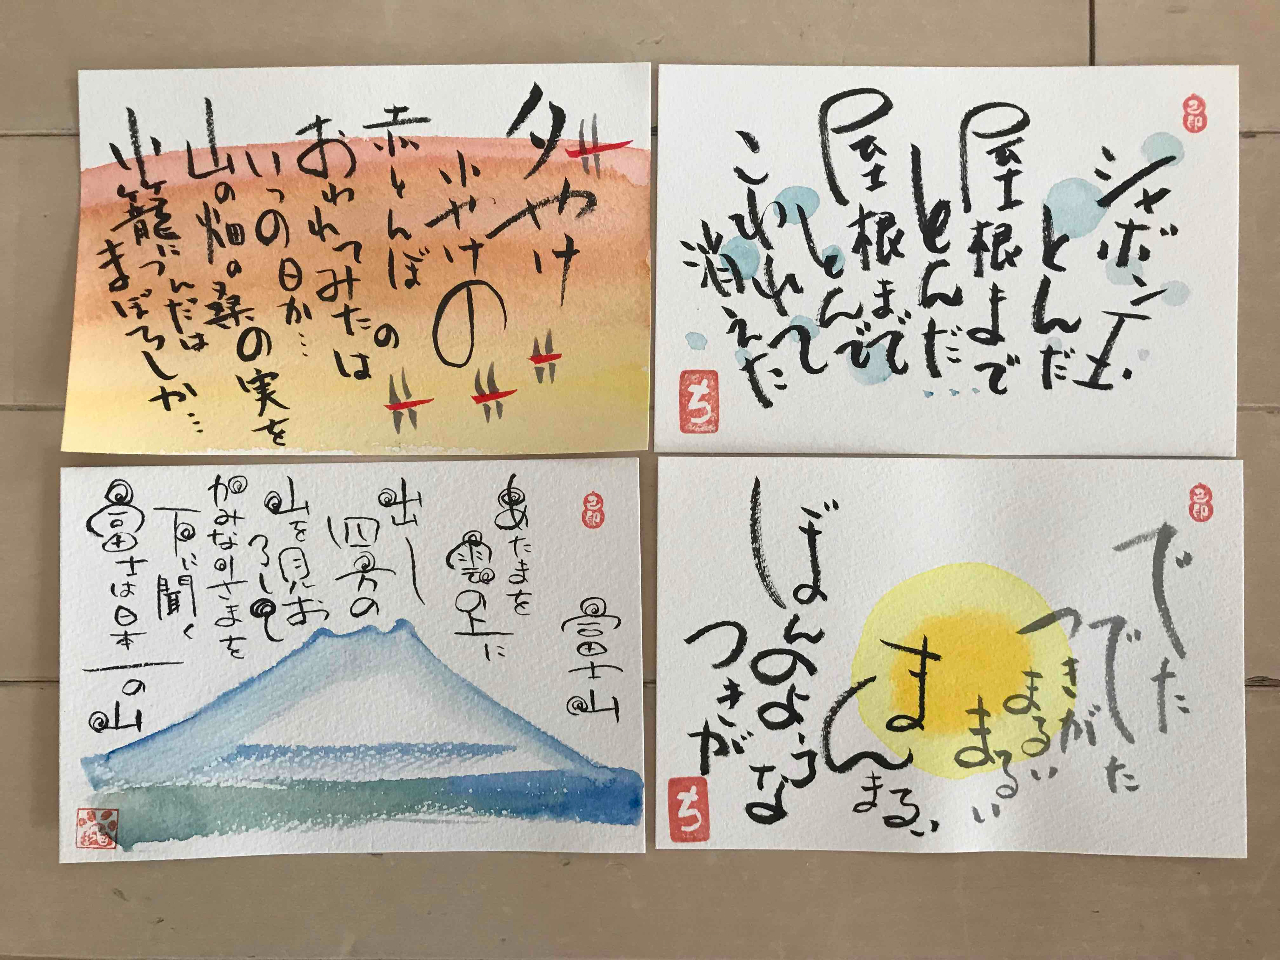 夕やけ
小やけの
赤とんぼ
おわれてみたのは
いつの日か…
山の畑の桑の実を
小籠につんだは
まぼろしか…
シャボン玉
とんだ
屋根まで
とんだ
屋根まで
とんで
こわれて
消えた
ち
富士山
あたまを
雲の上に
出し
四方の
山を見お
ろして
かみなりさまを
下に聞く
富士は日本
一の山
でた
でた
つきが
まるい
まるい
まんまるい
ぼんのような
つきが
ち